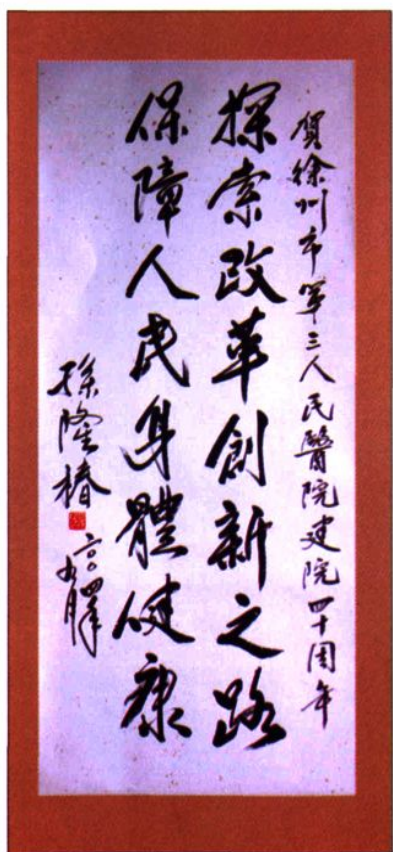 賀徐州市第三人民醫院建院四十周年
探索改革創新之路
保障人民身體健康
孫隆椿
二〇〇四年
九月